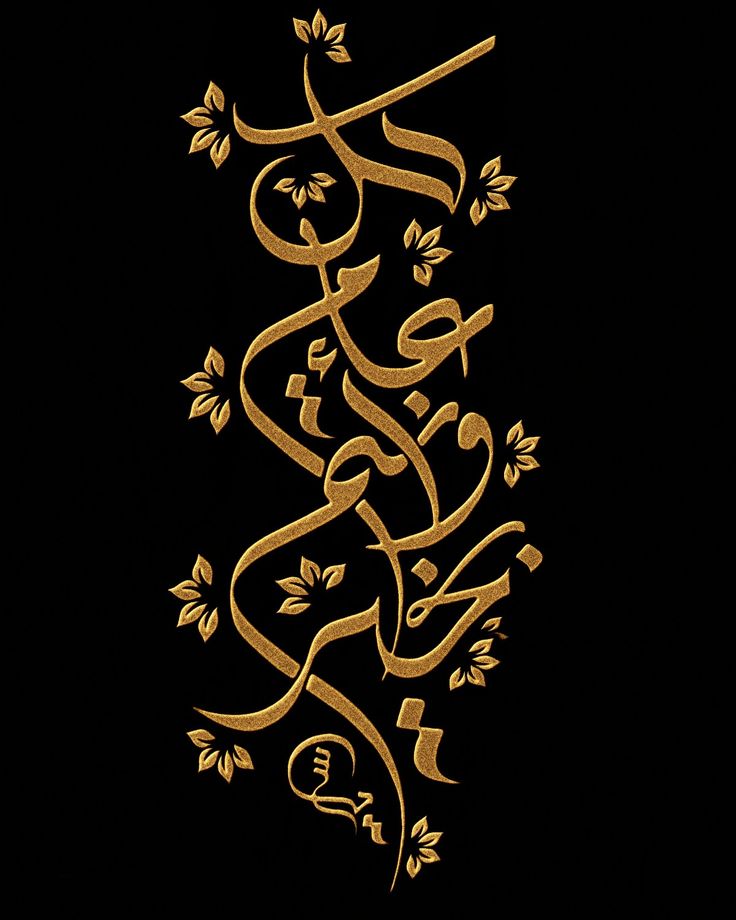 كل
عام
وأنتم
بخير